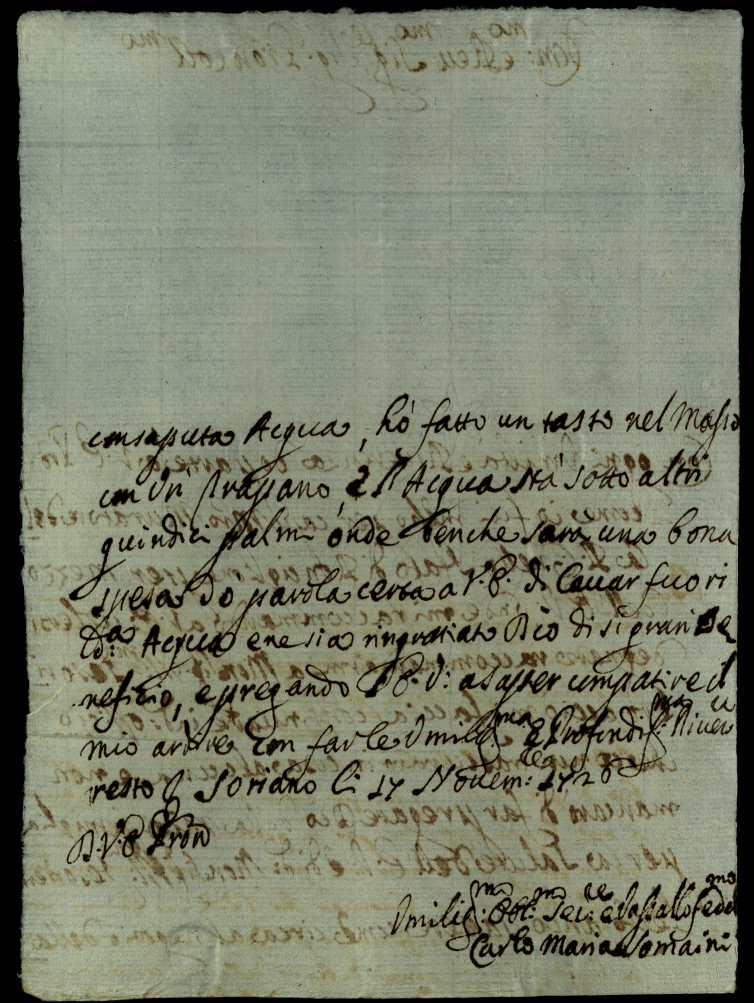 consaputa Acqua, hò fatto un tasto nel Masso
con Un' Trapano, e l'Acqua stà sotto altri
quindici palmi onde benche sarà una bona
spesa dò parola certa a V.E. di Cavar fuori
d.a Acqua e ne sia ringratiato Dio di sì gran Be
neficio, e pregando V.E. a saper compatire il
mio ardire con farle Umiliss.ma e Profondiss.ma River.za
resto Soriano li 17 Novem.: 1726
D.V.E. Pron
Umiliss.mo: Obl.mo: Ser.re: e Vassallo fedel.mo
Carlo Maria Somaini